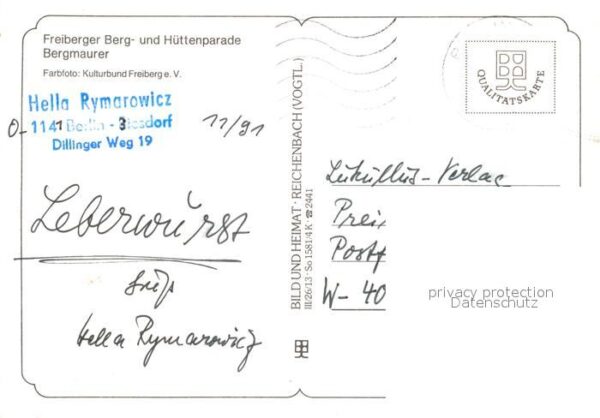 Freiberger Berg- und Hüttenparade
Bergmaurer
Farbfoto: Kulturbund Freiberg e. V.
Hella Rymarowicz
O-1141 Berlin - Biesdorf
Dillinger Weg 19
11/91
Leberwurst
Hella Rymarowicz
BILD UND HEIMAT · REICHENBACH (VOGTL.)
III/26/13 · So 1581/4 K · ☎ 2441
QUALITÄTSKARTE
Lukullus-Verlag
Prei
Postf
W-40
privacy protection
Datenschutz